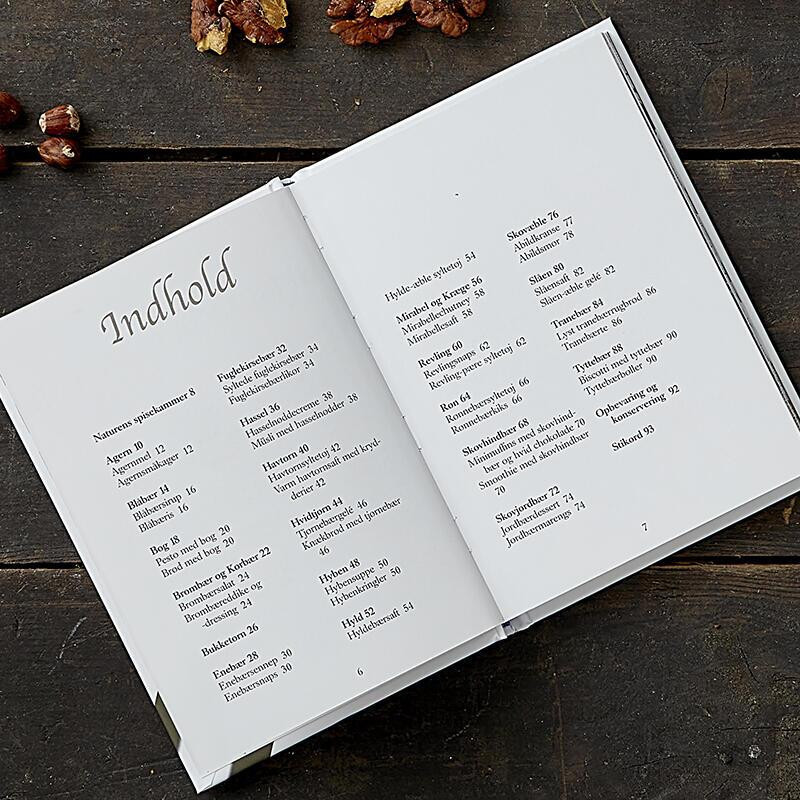 Indhold
Naturens spisekammer 8
Agern 10
Agernmel 12
Agernsmåkager 12
Blåbær 14
Blåbærsirup 16
Blåbæris 16
Bog 18
Pesto med bog 20
Brød med bog 20
Brombær og Korbær 22
Brombærsalat 24
Brombæreddike og
-dressing 24
Bukketorn 26
Enebær 28
Enebærsennep 30
Enebærsnaps 30
Fuglekirsebær 32
Syltede fuglekirsebær 34
Fuglekirsebærlikør 34
Hassel 36
Hasselnøddecreme 38
Müsli med hasselnødder 38
Havtorn 40
Havtornsyltetøj 42
Varm havtornsaft med kryd-
derier 42
Hvidtjørn 44
Tjørnebærgelé 46
Knækbrød med tjørnebær
46
Hyben 48
Hybensuppe 50
Hybenkringler 50
Hyld 52
Hyldebærsaft 54
6
Hylde-æble syltetøj 54
Mirabel og Kræge 56
Mirabellechutney 58
Mirabellesaft 58
Revling 60
Revlingsnaps 62
Revling-pære syltetøj 62
Røn 64
Rønnebærsyltetøj 66
Rønnebærkiks 66
Skovhindbær 68
Minimuffins med skovhind-
bær og hvid chokolade 70
Smoothie med skovhindbær
70
Skovjordbær 72
Jordbærdessert 74
Jordbærmarengs 74
Skovæble 76
Abildkranse 77
Abildsmør 78
Slåen 80
Slåensaft 82
Slåen-æble gelé 82
Tranebær 84
Lyst tranebærrugbrød 86
Tranebærte 86
Tyttebær 88
Biscotti med tyttebær 90
Tyttebærboller 90
Opbevaring og
konservering 92
Stikord 93
7